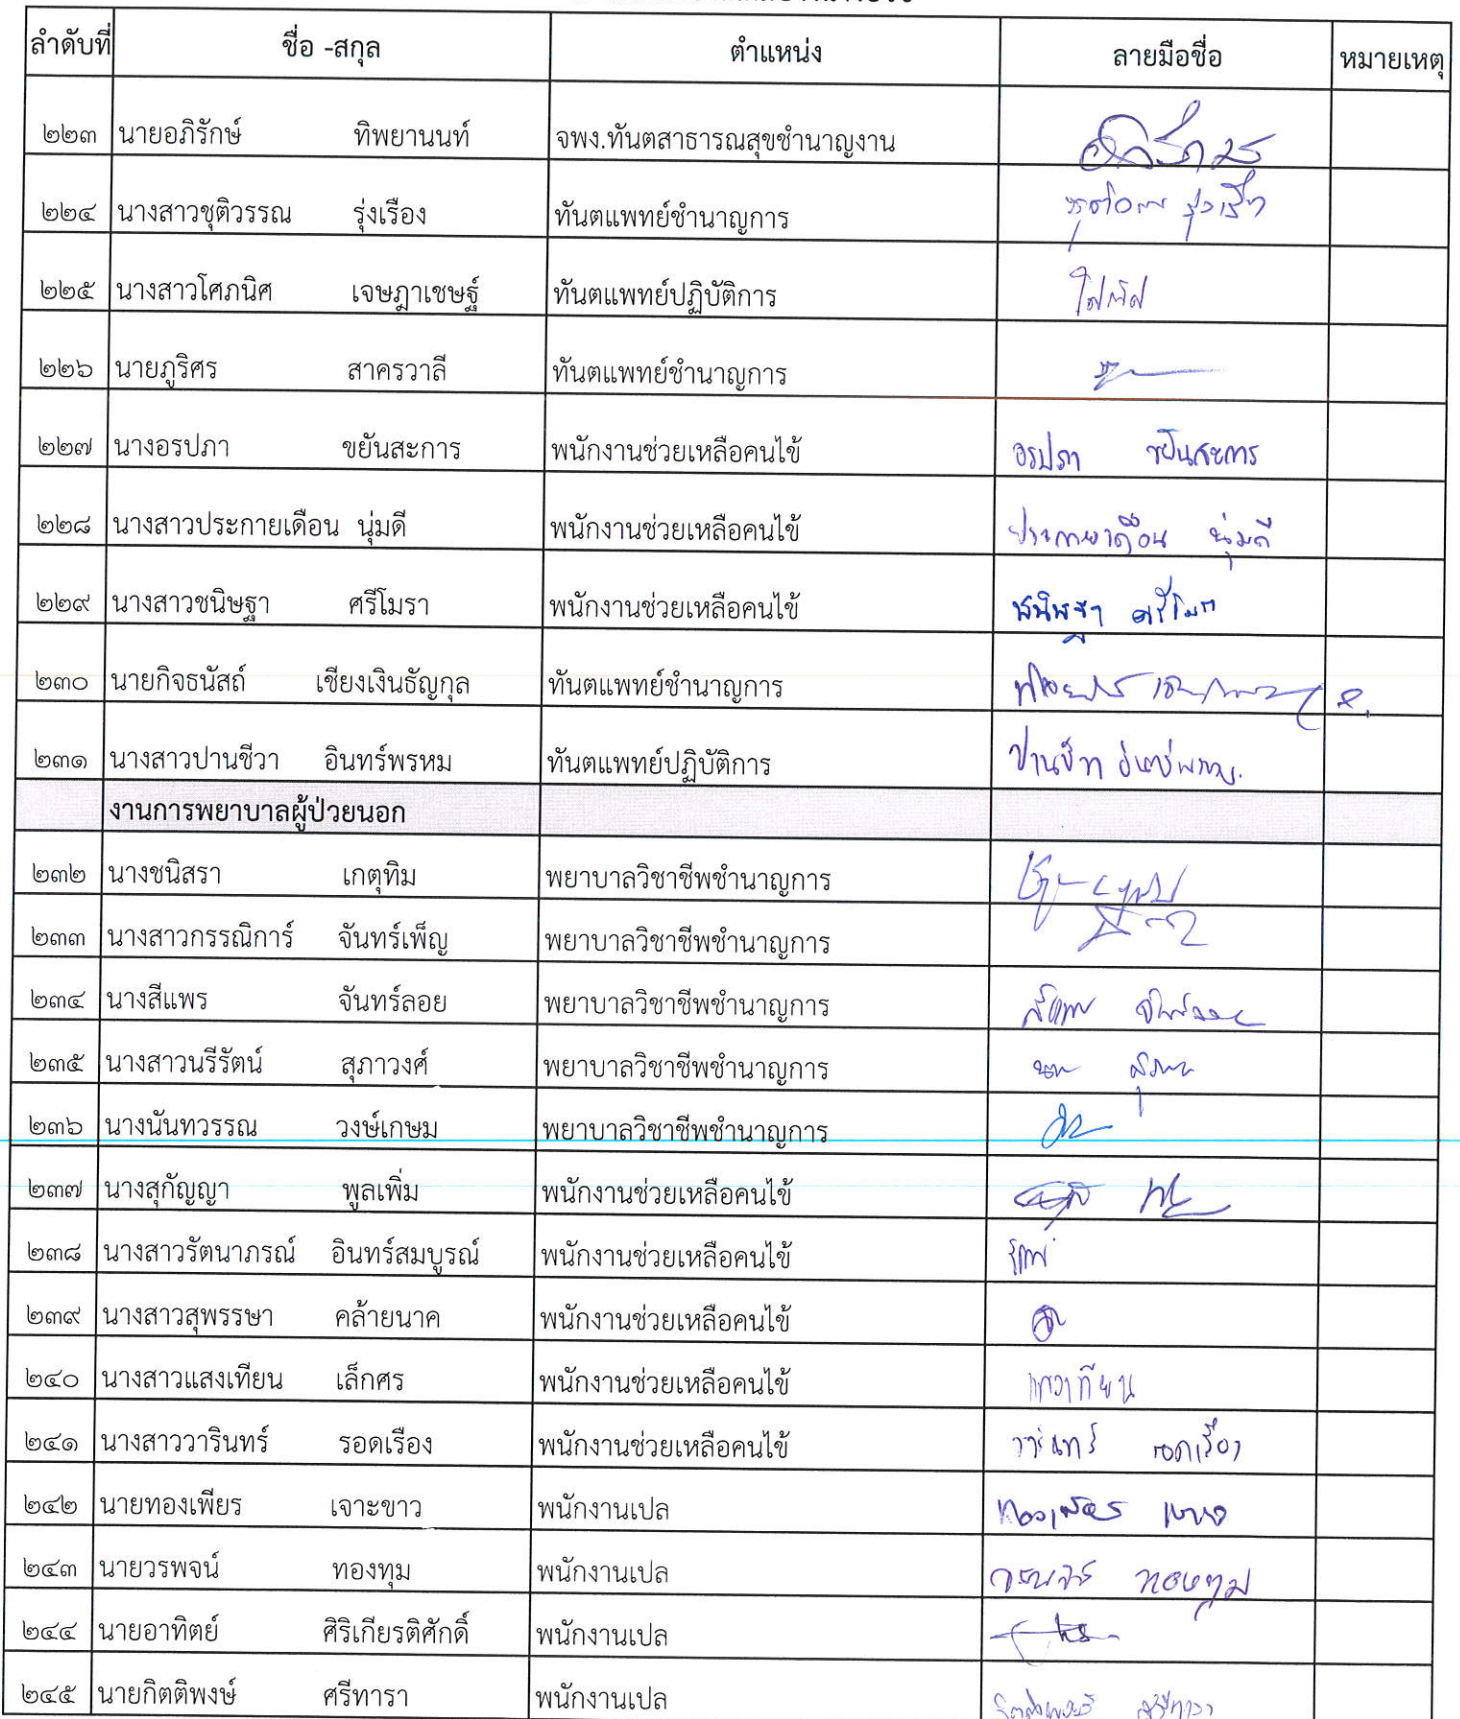 ลำดับที่ ชื่อ -สกุล ตำแหน่ง ลายมือชื่อ หมายเหตุ
๒๒๓ นายอภิรักษ์ ทิพยานนท์ จพง.ทันตสาธารณสุขชำนาญงาน
๒๒๔ นางสาวชุติวรรณ รุ่งเรือง ทันตแพทย์ชำนาญการ
๒๒๕ นางสาวโศภนิศ เจษฎาเชษฐ์ ทันตแพทย์ปฏิบัติการ
๒๒๖ นายภูริศร สาครวาลี ทันตแพทย์ชำนาญการ
๒๒๗ นางอรปภา ขยันสะการ พนักงานช่วยเหลือคนไข้ อรปภา ขยันสะการ
๒๒๘ นางสาวประกายเดือน นุ่มดี พนักงานช่วยเหลือคนไข้ ประกายเดือน นุ่มดี
๒๒๙ นางสาวชนิษฐา ศรีโมรา พนักงานช่วยเหลือคนไข้ ชนิษฐา ศรีโมรา
๒๓๐ นายกิจธนัสถ์ เชียงเงินธัญกุล ทันตแพทย์ชำนาญการ
๒๓๑ นางสาวปานชีวา อินทร์พรหม ทันตแพทย์ปฏิบัติการ ปานชีวา อินทร์พรหม
งานการพยาบาลผู้ป่วยนอก
๒๓๒ นางชนิสรา เกตุทิม พยาบาลวิชาชีพชำนาญการ
๒๓๓ นางสาวกรรณิการ์ จันทร์เพ็ญ พยาบาลวิชาชีพชำนาญการ
๒๓๔ นางสีแพร จันทร์ลอย พยาบาลวิชาชีพชำนาญการ
๒๓๕ นางสาวนรีรัตน์ สุภาวงศ์ พยาบาลวิชาชีพชำนาญการ
๒๓๖ นางนันทวรรณ วงษ์เกษม พยาบาลวิชาชีพชำนาญการ
๒๓๗ นางสุกัญญา พูลเพิ่ม พนักงานช่วยเหลือคนไข้
๒๓๘ นางสาวรัตนาภรณ์ อินทร์สมบูรณ์ พนักงานช่วยเหลือคนไข้
๒๓๙ นางสาวสุพรรษา คล้ายนาค พนักงานช่วยเหลือคนไข้
๒๔๐ นางสาวแสงเทียน เล็กศร พนักงานช่วยเหลือคนไข้ แสงเทียน
๒๔๑ นางสาววารินทร์ รอดเรือง พนักงานช่วยเหลือคนไข้ วารินทร์ รอดเรือง
๒๔๒ นายทองเพียร เจาะขาว พนักงานเปล
๒๔๓ นายวรพจน์ ทองทุม พนักงานเปล วรพจน์ ทองทุม
๒๔๔ นายอาทิตย์ ศิริเกียรติศักดิ์ พนักงานเปล
๒๔๕ นายกิตติพงษ์ ศรีทารา พนักงานเปล